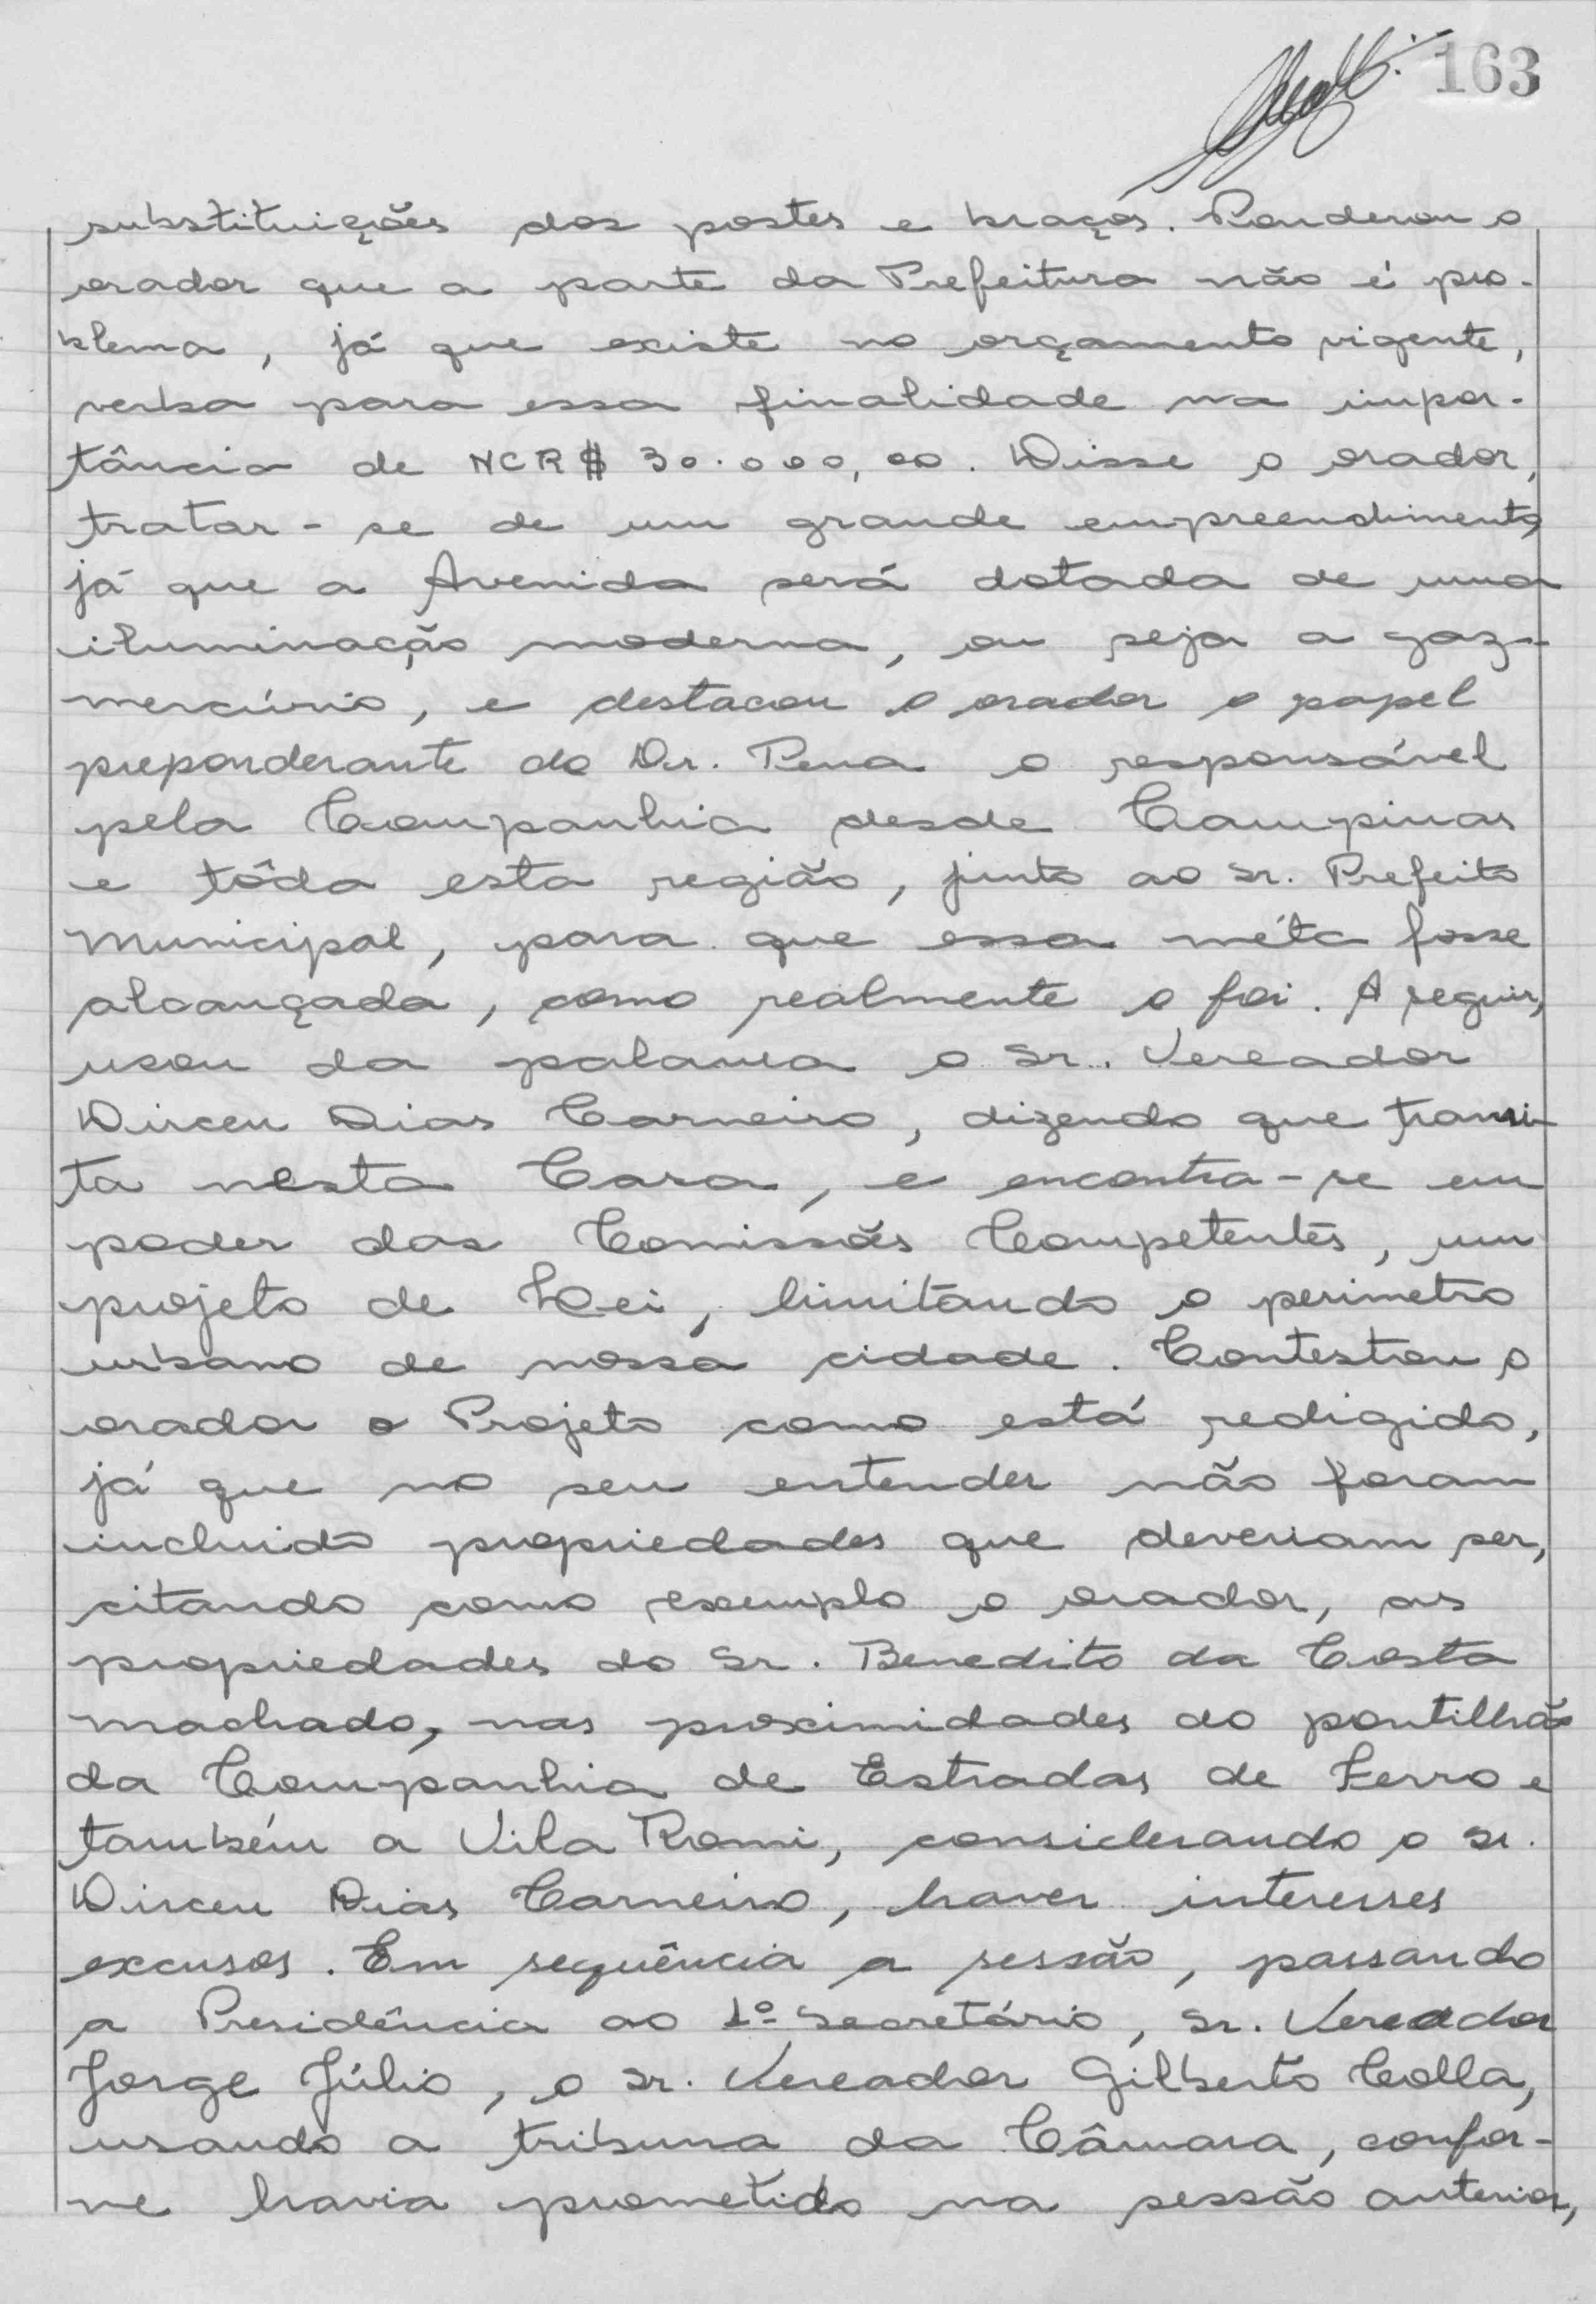 163
substituições dos postes e braços. Ponderou o
orador que a parte da Prefeitura não é pro-
blema, já que existe no orçamento vigente,
verba para essa finalidade na impor-
tância de NCR$ 30.000,00. Disse o orador,
tratar-se de um grande empreendimento,
já que a Avenida será dotada de uma
iluminação moderna, ou seja a gaz-
mercúrio, e destacou o orador o papel
preponderante do Dr. Pena o responsável
pela Companhia desde Campinas
e tôda esta região, junto ao Sr. Prefeito
Municipal, para que essa méta fosse
alcançada, como realmente o foi. A seguir,
usou da palavra o Sr. Vereador
Dirceu Dias Carneiro, dizendo que transi-
ta nesta Casa, e encontra-se em
poder das Comissões Competentes, um
projeto de Lei, limitando o perimetro
urbano de nossa cidade. Contestou o
orador o Projeto como está redigido,
já que no seu entender não foram
incluido propriedades que deveriam ser,
citando como exemplo o orador, as
propriedades do Sr. Benedito da Costa
Machado, nas proximidades do pontilhão
da Companhia de Estradas de Ferro e
também a Vila Romi, considerando o Sr.
Dirceu Dias Carneiro, haver interesses
excusos. Em sequência a sessão, passando
a Presidência ao 1º Secretário, Sr. Vereador
Jorge Júlio, o Sr. Vereador Gilberto Colla,
usando a tribuna da Câmara, confor-
me havia prometido na sessão anterior,